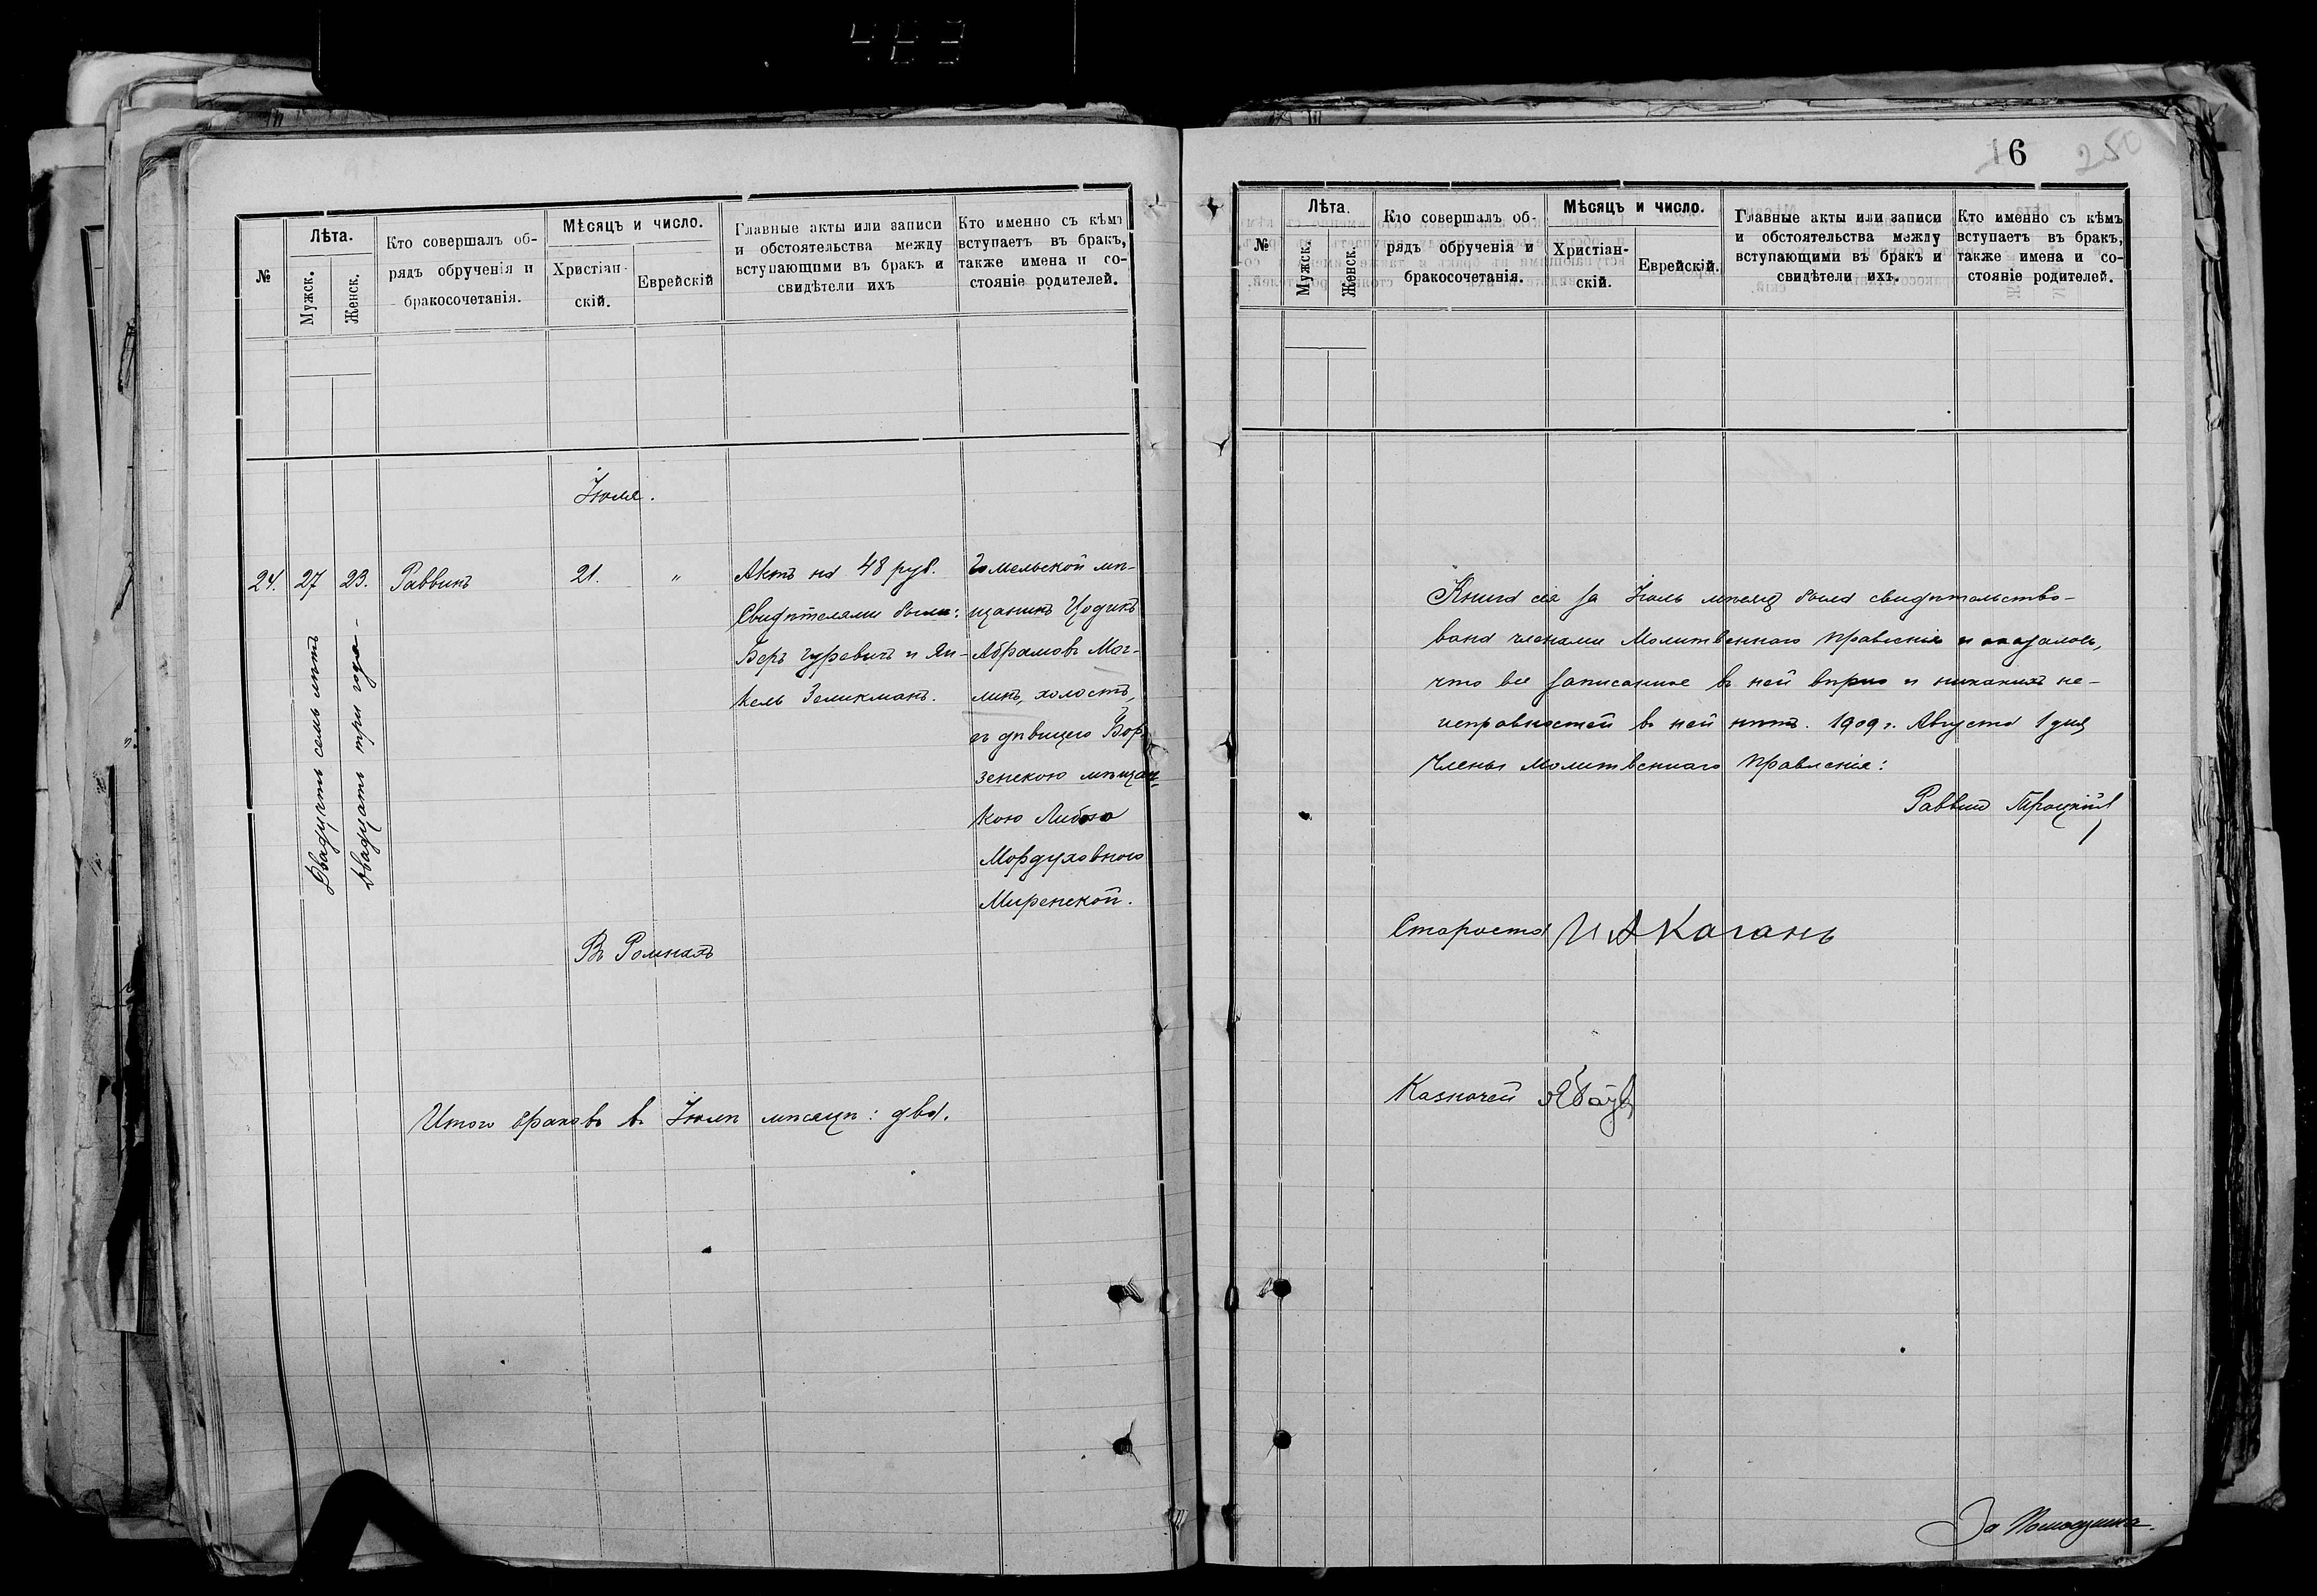 №
Лѣта.
Мужск.
Женск.
Кто совершалъ об-
рядъ обрученія и
бракосочетанія.
Мѣсяцъ и число.
Христіан-
скій.
Еврейскій
Главные акты или записи
и обстоятельства между
вступающими въ бракъ и
свидѣтели ихъ
Кто именно съ кѣмъ
вступаетъ въ бракъ,
также имена и со-
стояніе родителей.
Іюля.
24.
27
23.
Двадцать семь лѣтъ
двадцать три года
Раввинъ
21.
"
Актъ на 48 руб.
Свидѣтелями были:
Беръ Гуревичъ и Ян-
кель Зеликманъ.
Гомельской мѣ-
щанинъ Цодикъ
Абрамовъ Мог-
линъ, холостъ,
съ дѣвицею Бор-
зенскою мѣщан-
кою Либою
Мордуховною
Миренской.
Въ Ромнахъ
Итого браковъ въ Іюлѣ мѣсяцѣ: два.
16
250
№
Лѣта.
Мужск.
Женск.
Кто совершалъ об-
рядъ обрученія и
бракосочетанія.
Мѣсяцъ и число.
Христіан-
скій.
Еврейскій.
Главные акты или записи
и обстоятельства между
вступающими въ бракъ и
свидѣтели ихъ.
Кто именно съ кѣмъ
вступаетъ въ бракъ,
также имена и со-
стояніе родителей.
Книга сія за Іюль мѣсяцъ была свидѣтельство-
вана членами Молитвеннаго Правленія и оказалось,
что все записанное въ ней вѣрно и никакихъ не-
исправностей въ ней нѣтъ. 1909 г. Августа 1 дня
Члены Молитвеннаго Правленія:
Раввин Троцкій
Староста И А Каганъ
Казначей
За